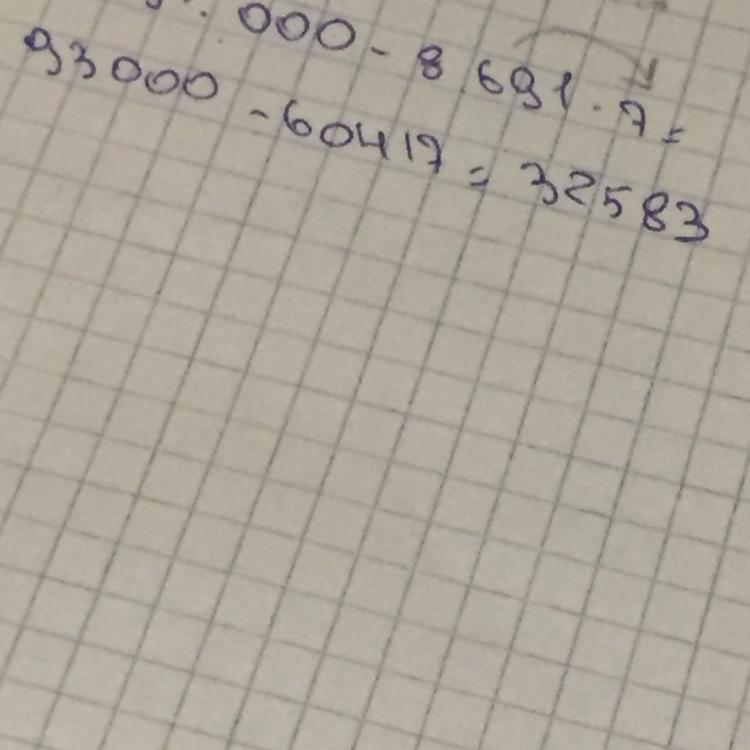 000 - 8 691 · 7 =
93000 - 60417 = 32583